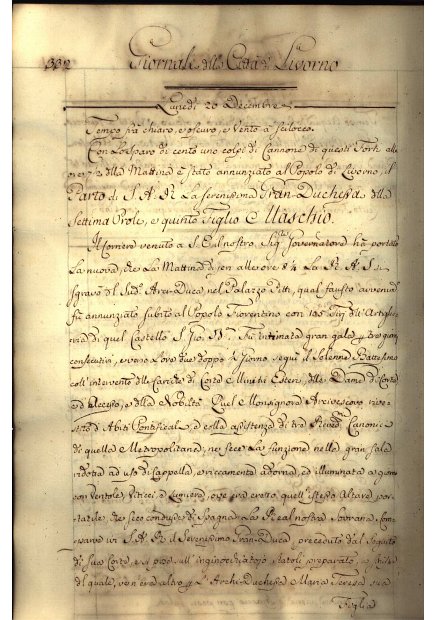 332
Giornale della Città di Livorno
Lunedì 20 Decembre
Tempo fra chiaro, e oscuro, e Vento a scilocco.
Con lo sparo di cento uno colpi di Cannone di questi Forti alle
ore della Mattina è stato annunziato al Popolo di Livorno, il
Parto di S. A. R. La Serenissima Gran-Duchessa della
Settima Prole, e quinto Figlio Maschio.
Il Corriere venuto a S. E. il nostro Sig.re Governatore ha portato
la nuova, che la Mattina di jeri alle ore 4 La R. A. S.
sgravò del Arci-Duca, nel Palazzo Pitti, qual fausto avveni
fù annunziato subito al Popolo Fiorentino con tiri dell'Artiglie
ria di quel Castello S. Gio. Fù intimata gran gala per tre giorni
consecutivi, e verso l'ore due doppo giorno seguì il Solenne Battesimo
coll'intervento delle Cariche di Corte e Ministri Esteri, delle Dame di Corte
ed Accesso, e della Nobiltà. Quel Monsignore Arcivescovo rive
stito d'Abiti Pontificali, e colla assistenza di tre Canonici
di quella Metropolitana, ne fece la funzione nella gran Sala
ridotta ad uso di Cappella, e riccamente adorna, ed illuminata a giorno
con Ventole, Viticci, e Lumiere, ove era eretto quell'istesso Altare por
tatile, che seco condusse di Spagna La Real nostra Sovrana. Com
parve ivi S. A. R. il Serenissimo Gran-Duca, preceduto dal Seguito
di sua Corte, e si pose sull'inginocchiatojo statoli preparato, a
del quale, ve n'era altro per L'Archi-Duchessa Maria Teresa sua
Foglia